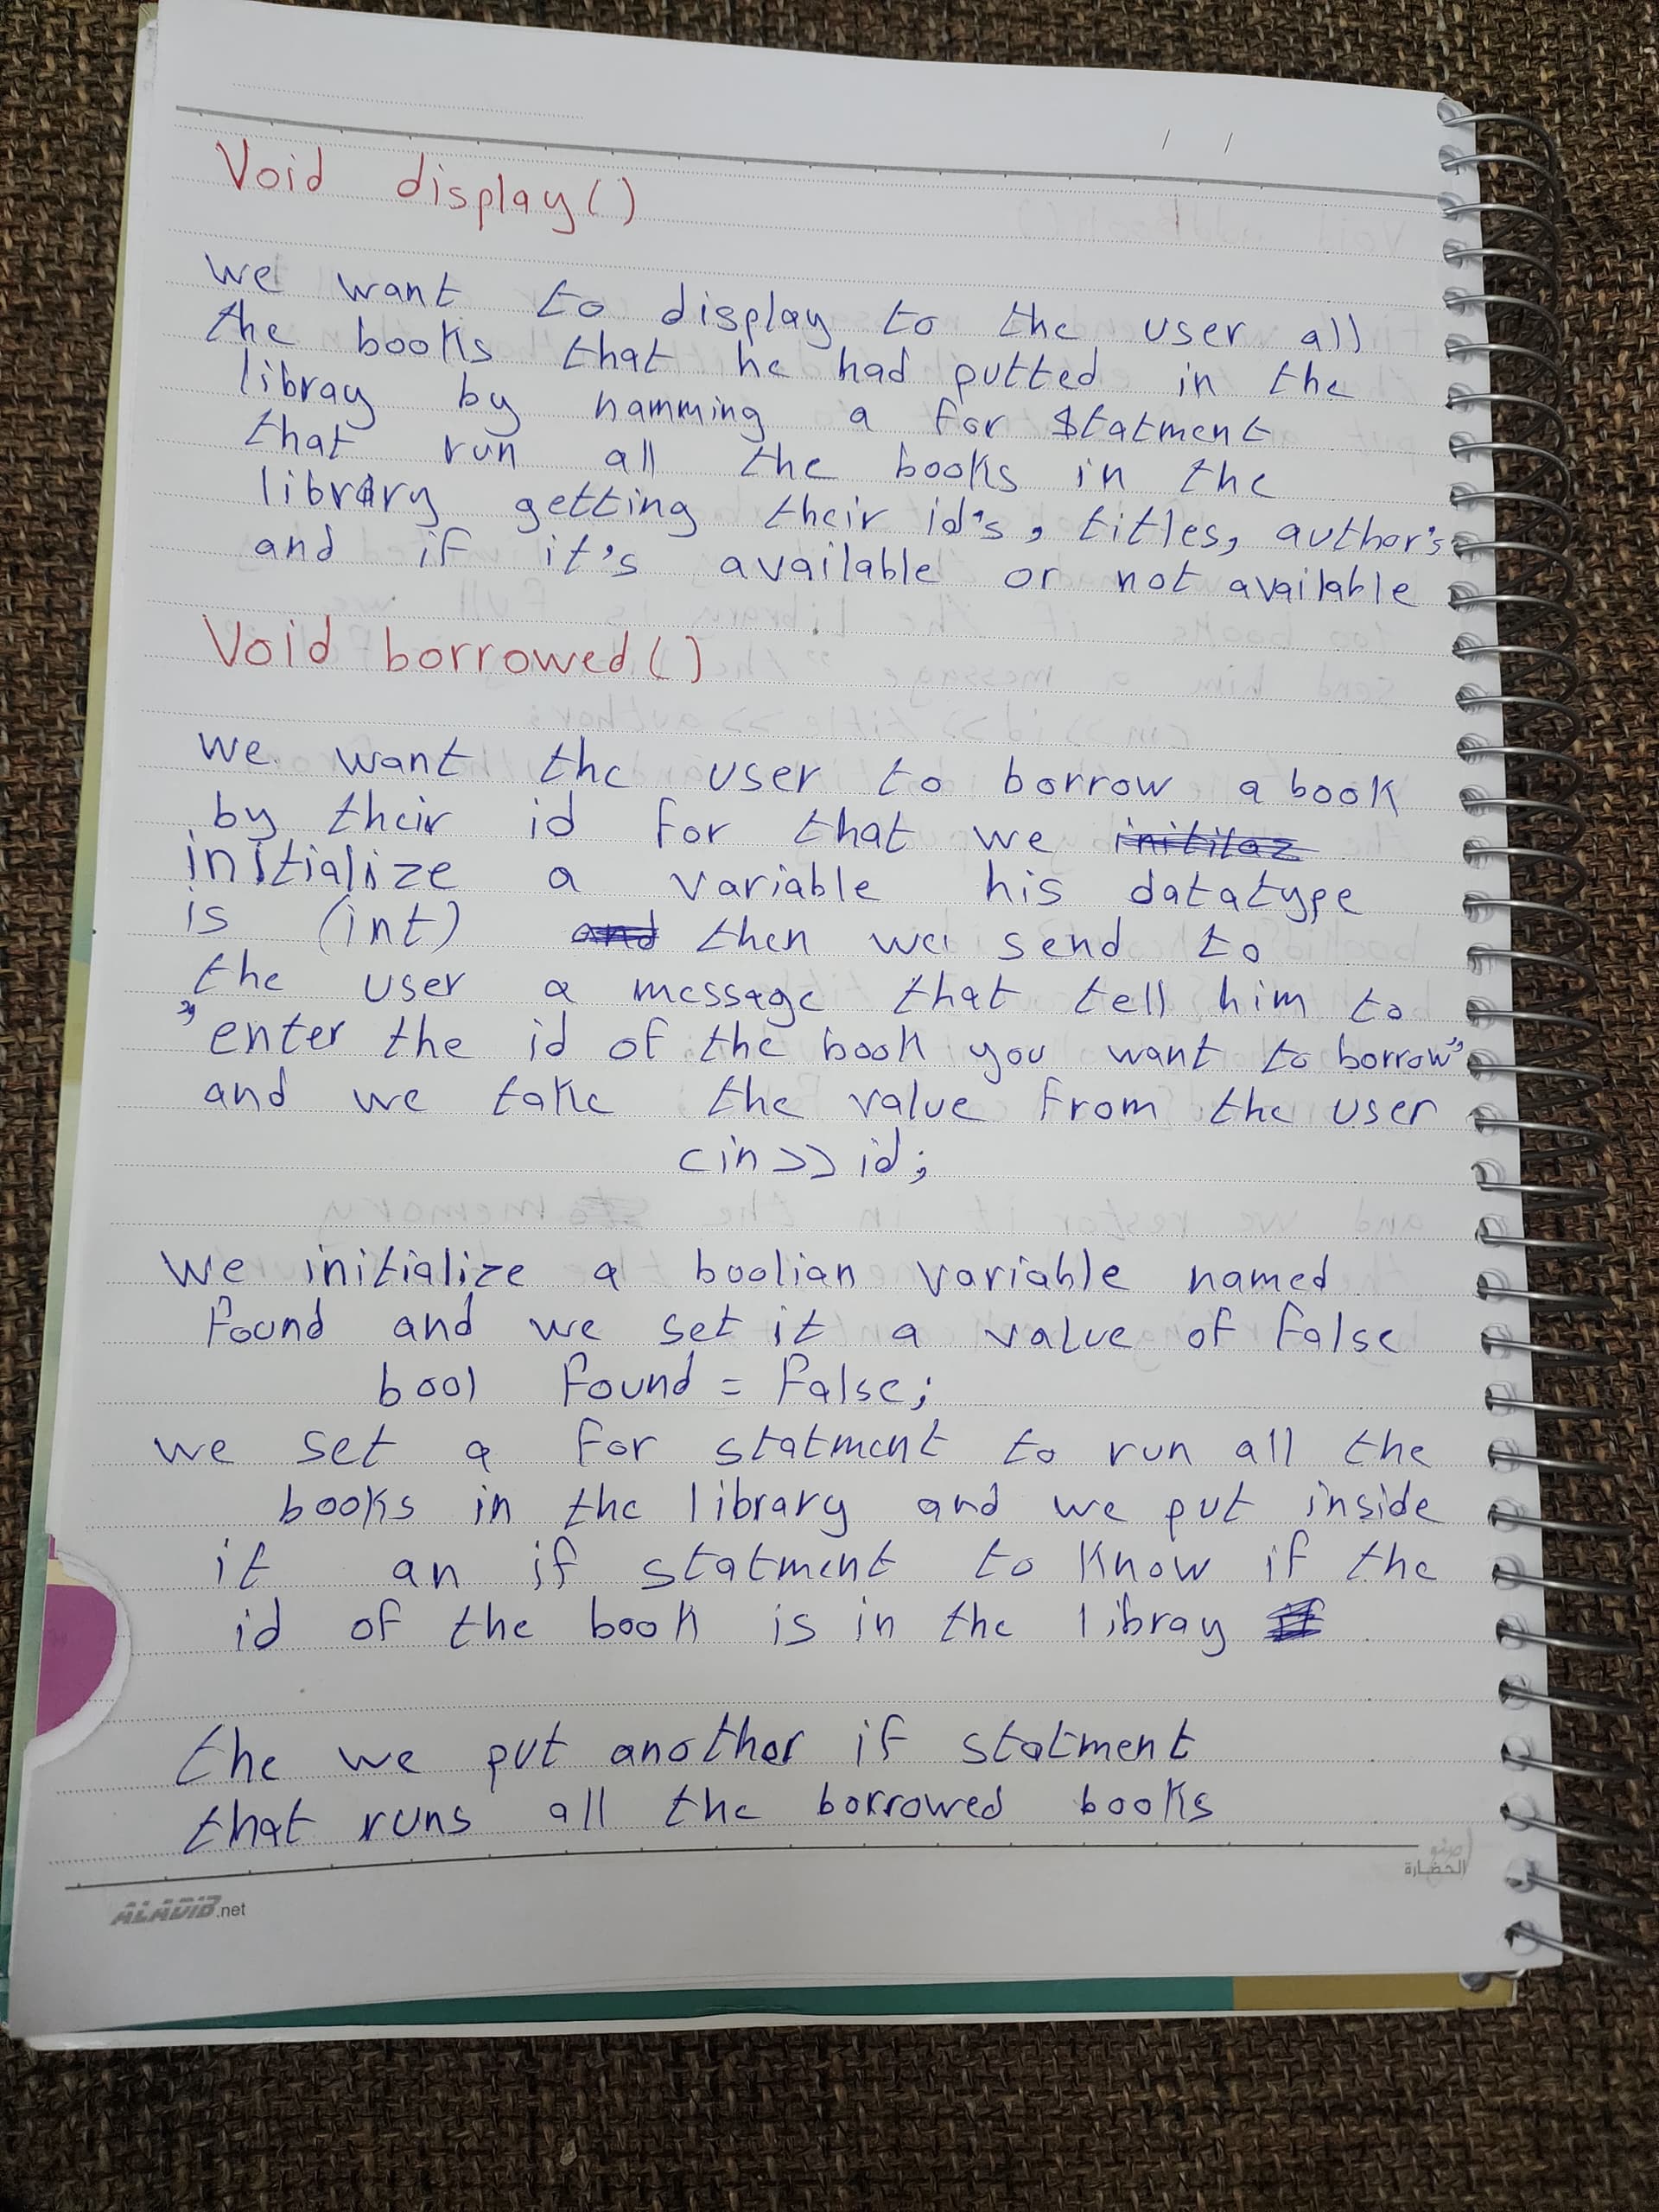 Void display()
we want to display to the user all
the books that he had putted in the
libray by namming a for statment
that run all the books in the
library getting their id's, titles, author's
and if it's available or not available
Void borrowed()
we want the user to borrow a book
by their id for that we initilaz
initialize a variable his datatype
is (int) and then we send to
the user a message that tell him to
"enter the id of the book you want to borrow"
and we take the value from the user
cin>> id;
we initialize a boolian variable named
found and we set it a value of false
bool found = false;
we set a for statment to run all the
books in the library and we put inside
it an if statment to know if the
id of the book is in the libray
the we put another if statment
that runs all the borrowed books
ALADIB.net
الحضارة